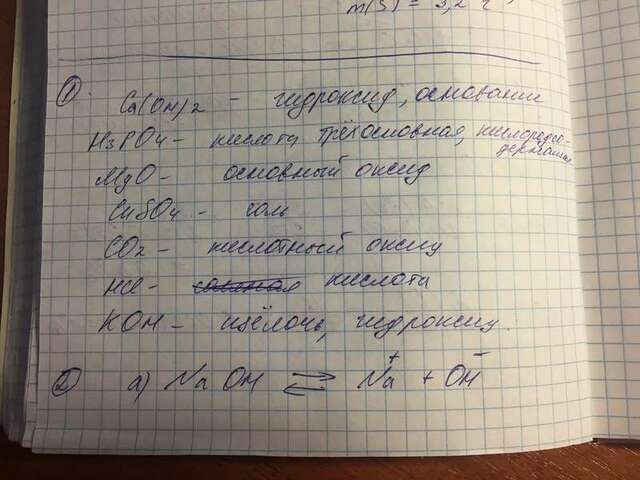 m(S) = 3,2 г
① Ca(OH)2 - гидроксид, основание
H3PO4 - кислота трёхосновная, кислородо-
держащая
MgO - основный оксид
CuSO4 - соль
CO2 - кислотный оксид
HCl - кислота
KOH - щёлочь, гидроксид
② а) NaOH ⇄ Na⁺ + OH⁻